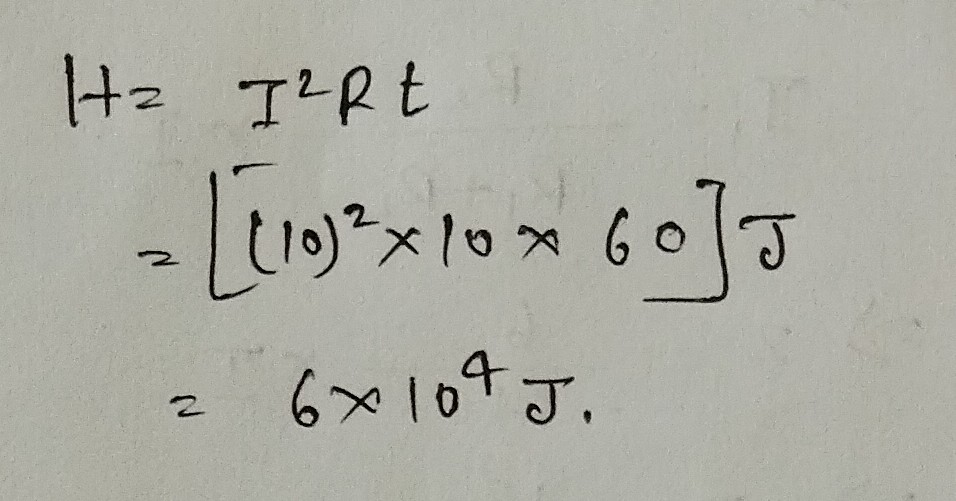 H = I²Rt
= [(10)² × 10 × 60] J
= 6 × 10⁴ J.